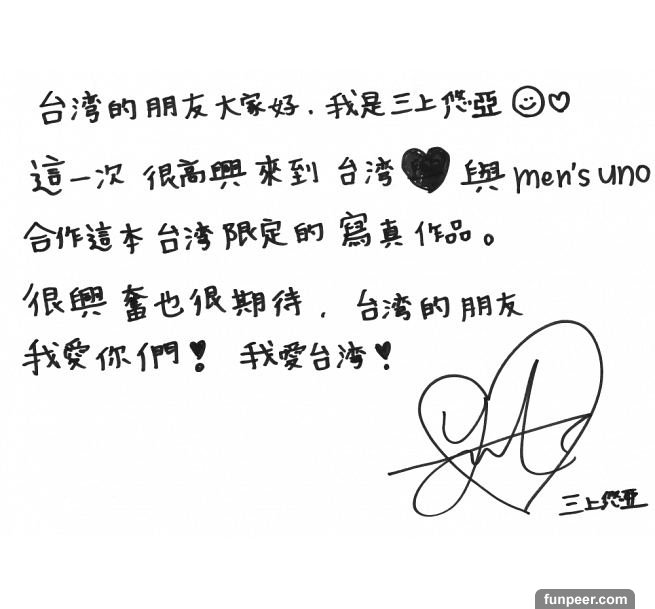 台湾的朋友大家好.我是三上悠亞☺♡
這一次 很高興來到 台湾♥與 men's uno
合作這本台湾限定的寫真作品。
很興奮也很期待, 台湾的朋友
我愛你們! 我愛台湾!
三上悠亞
funpeer.com